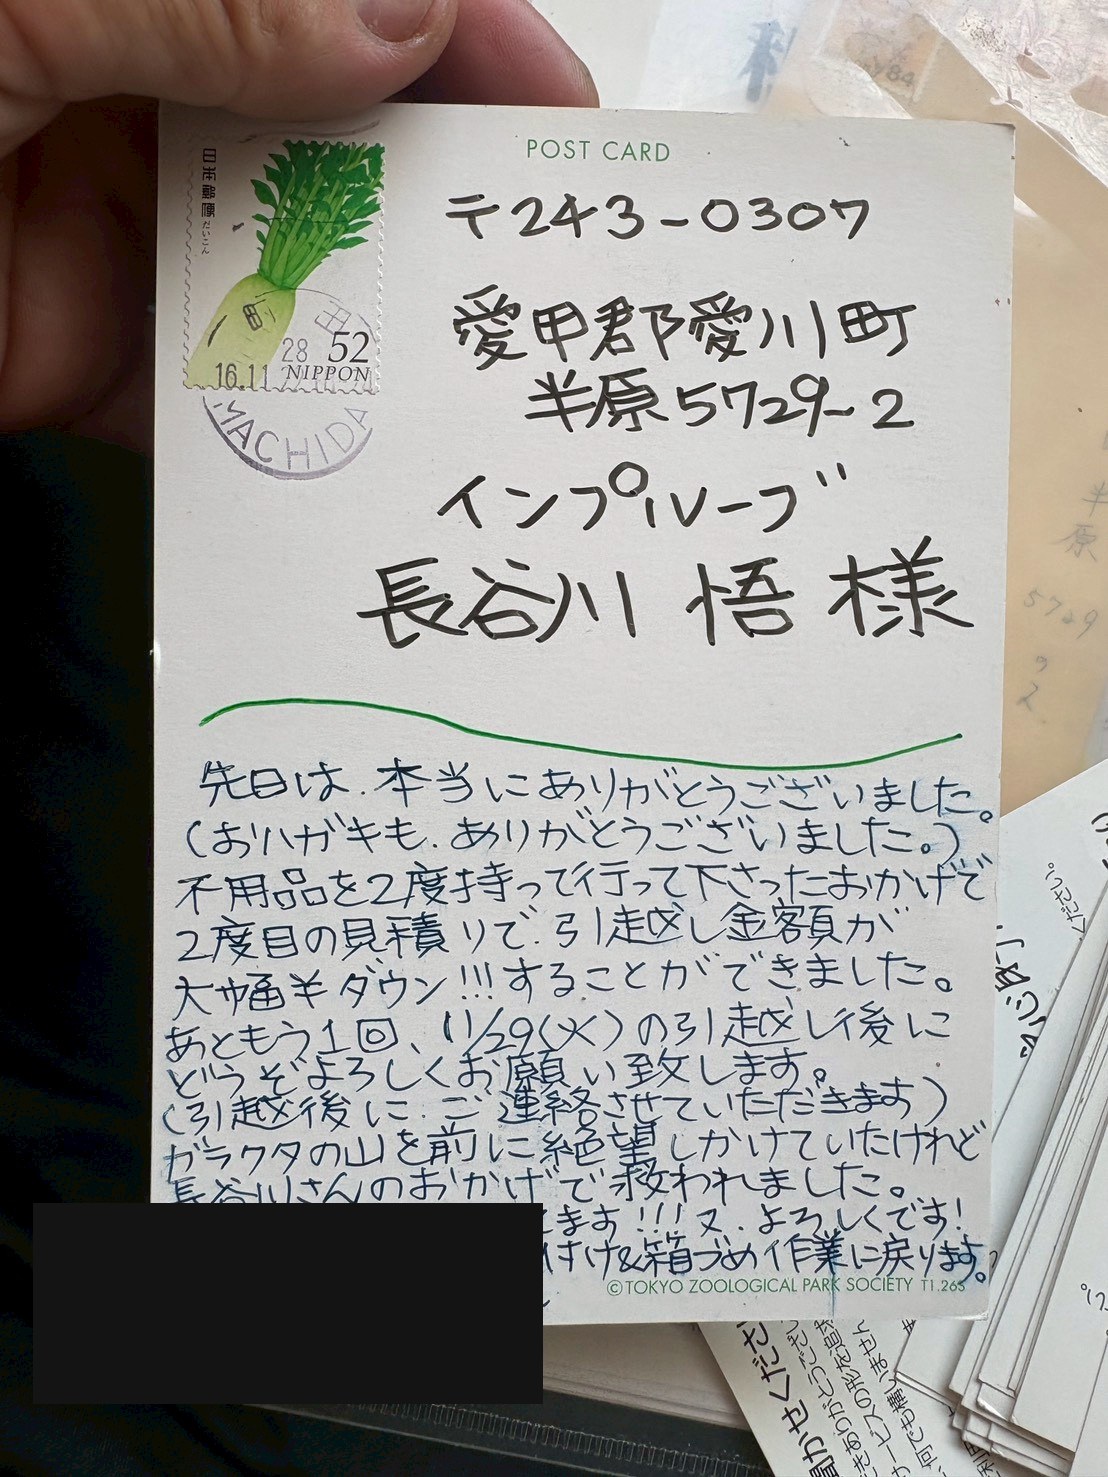 POST CARD
日本郵便
52
NIPPON
16.11 28
MACHIDA
〒243-0307
愛甲郡愛川町
半原5729-2
インプルーブ
長谷川 悟 様
先日は、本当にありがとうございました。
(おハガキも、ありがとうございました。)
不用品を2度持って行って下さったおかげで
2度目の見積りで、引越し金額が
大幅半ダウン!!!することができました。
あともう1回、11/29(火)の引越し後に
どうぞよろしくお願い致します。
(引越後に、ご連絡させていただきます)
ガラクタの山を前に絶望しかけていたけれど
長谷川さんのおかげで救われました。
ます!!!又、よろしくです!
付け&箱づめ作業に戻ります。
©TOKYO ZOOLOGICAL PARK SOCIETY T1.26S
半原
5729
2
ください。
聞かせください